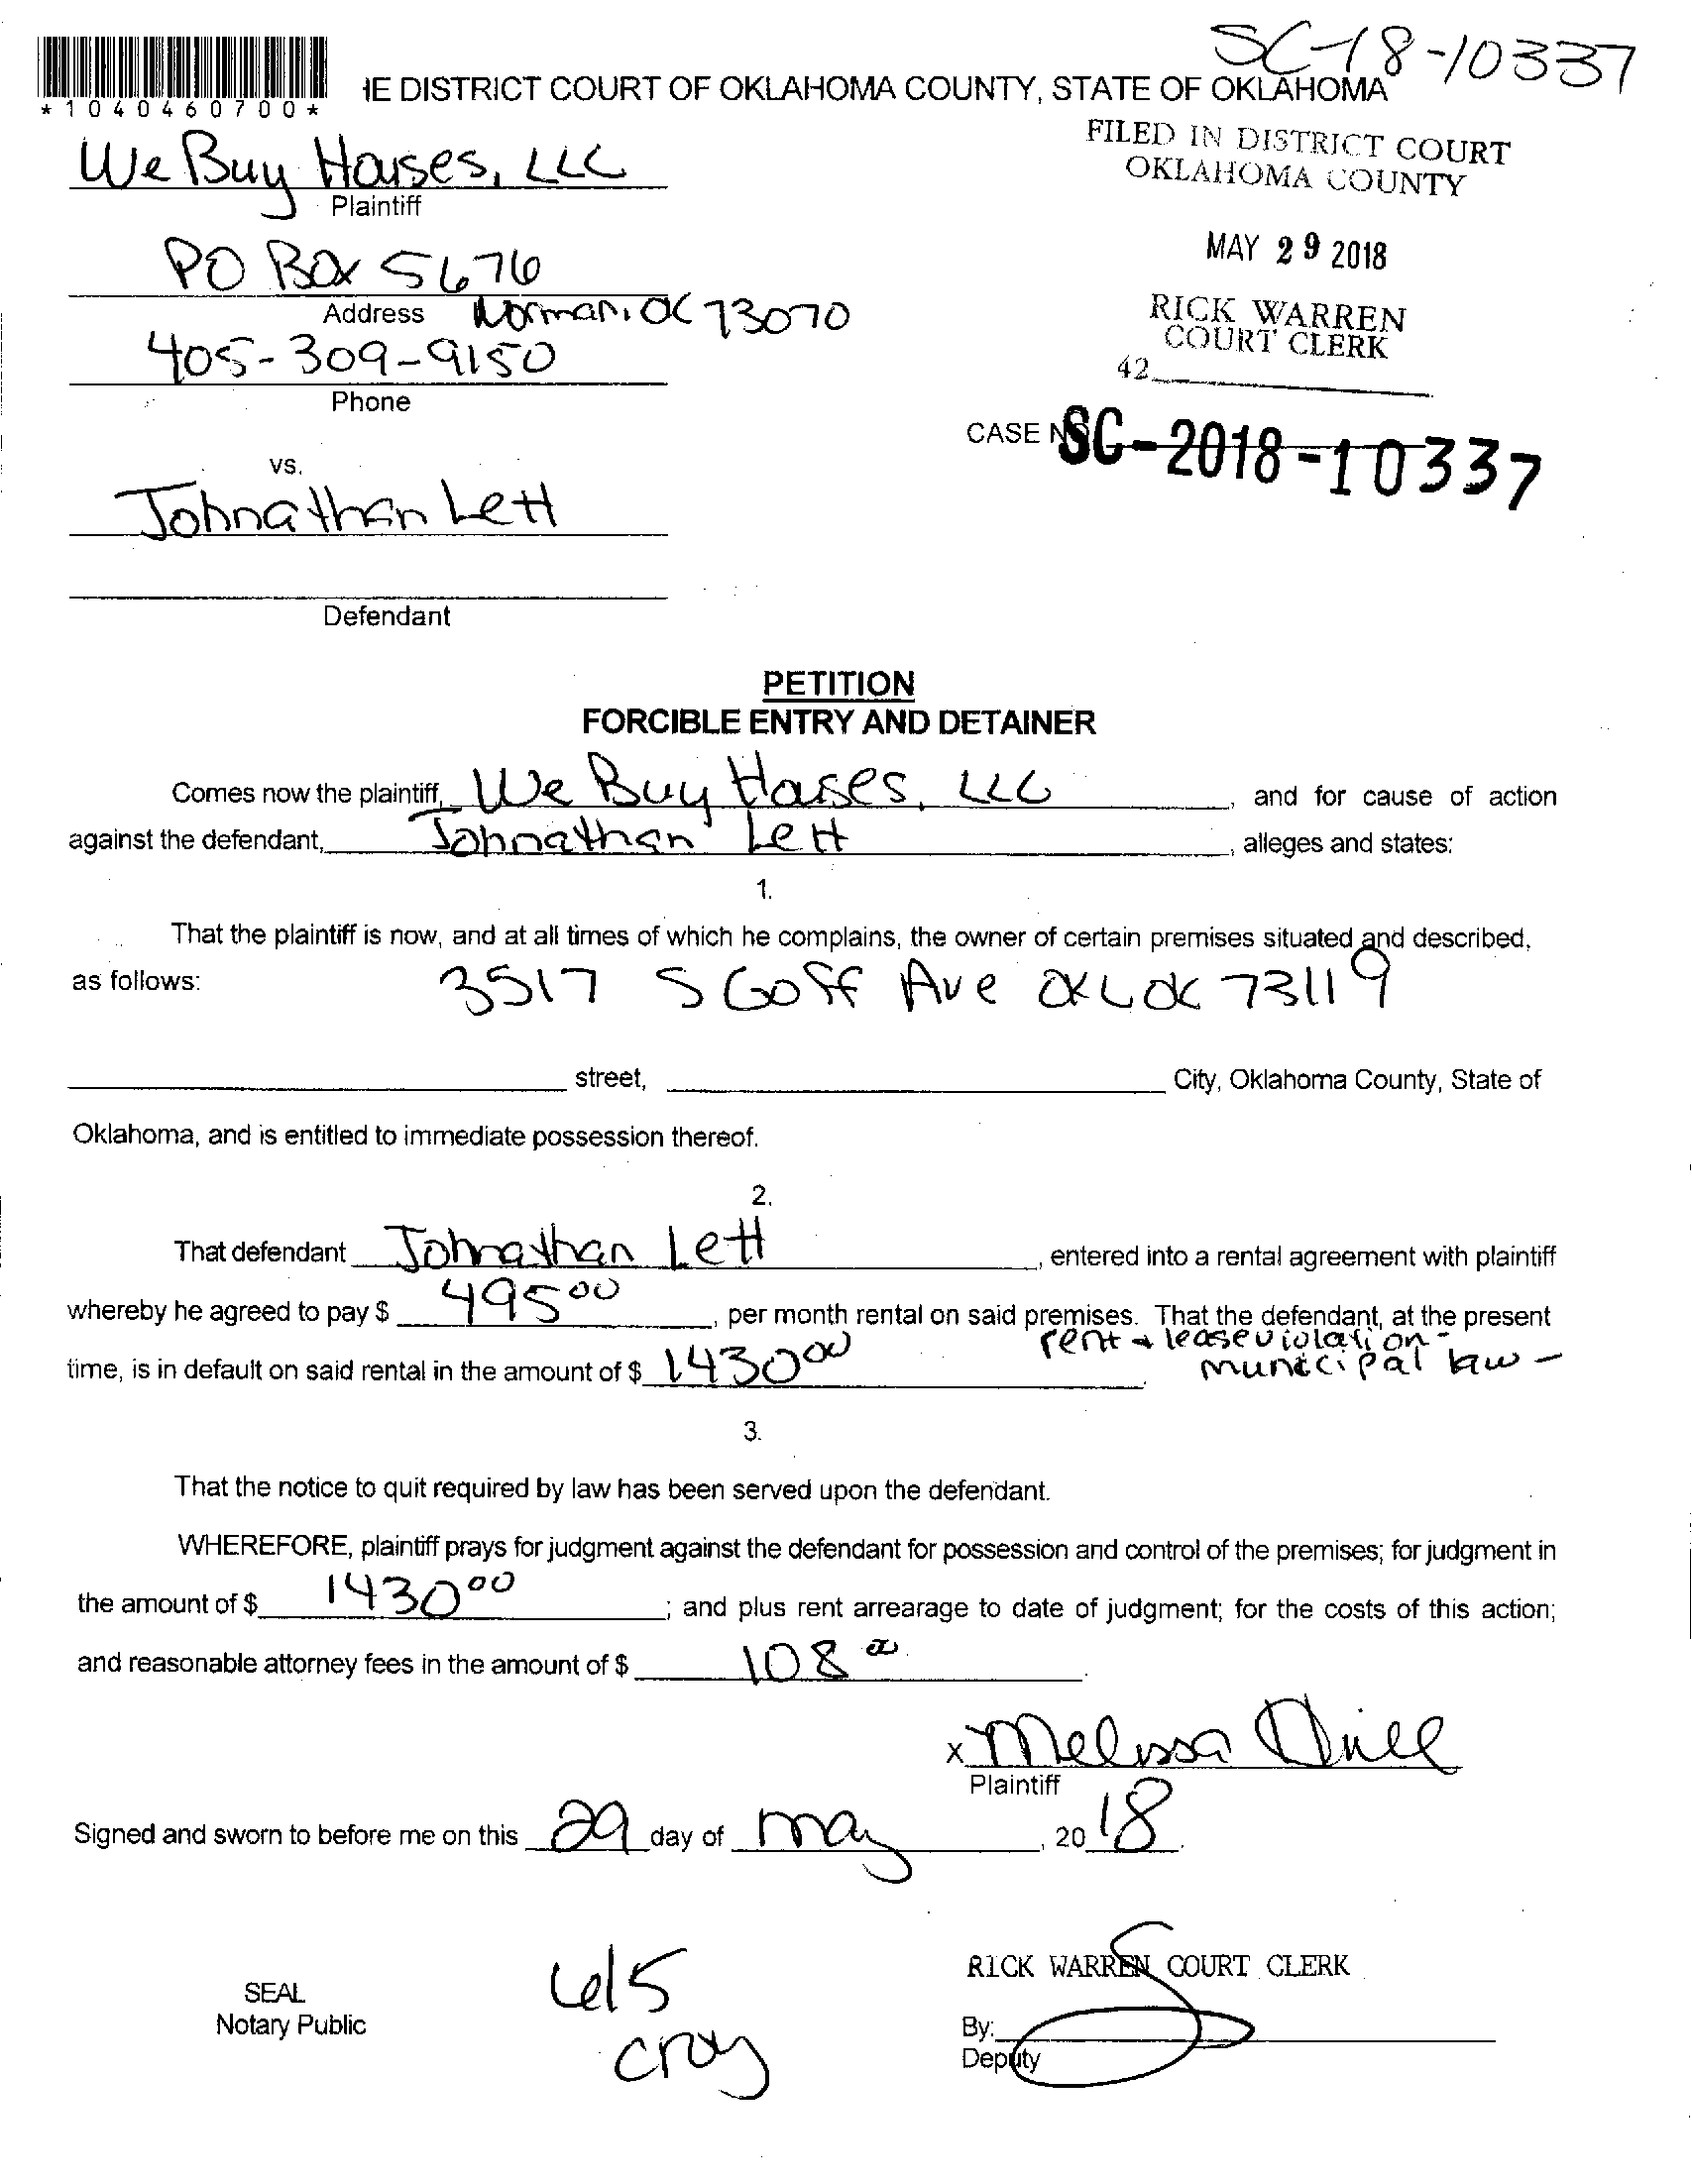 SC-18-10337
*1040460700*
IE DISTRICT COURT OF OKLAHOMA COUNTY, STATE OF OKLAHOMA
FILED IN DISTRICT COURT
OKLAHOMA COUNTY
We Buy Houses, LLC
Plaintiff
MAY 29 2018
PO Box 5676
Address Norman, OK 73070
RICK WARREN
COURT CLERK
405-309-9150
42
Phone
CASE NO SC-2018-10337
vs.
Johnathan Lett
Defendant
PETITION
FORCIBLE ENTRY AND DETAINER
Comes now the plaintiff, We Buy Houses, LLC, and for cause of action
against the defendant, Johnathan Lett, alleges and states:
1.
That the plaintiff is now, and at all times of which he complains, the owner of certain premises situated and described,
as follows: 3517 S Goff Ave OK OK 73119
street, City, Oklahoma County, State of
Oklahoma, and is entitled to immediate possession thereof.
2.
That defendant Johnathan Lett, entered into a rental agreement with plaintiff
whereby he agreed to pay $ 495 00, per month rental on said premises. That the defendant, at the present
time, is in default on said rental in the amount of $ 1430 00. rent + lease violation -
municipal law -
3.
That the notice to quit required by law has been served upon the defendant.
WHEREFORE, plaintiff prays for judgment against the defendant for possession and control of the premises; for judgment in
the amount of $ 1430 00; and plus rent arrearage to date of judgment; for the costs of this action;
and reasonable attorney fees in the amount of $ 108 00.
x Melissa
Plaintiff
Signed and sworn to before me on this 29 day of May, 20 18.
RICK WARREN COURT CLERK
SEAL
Notary Public
6/5
By:
Deputy
croy